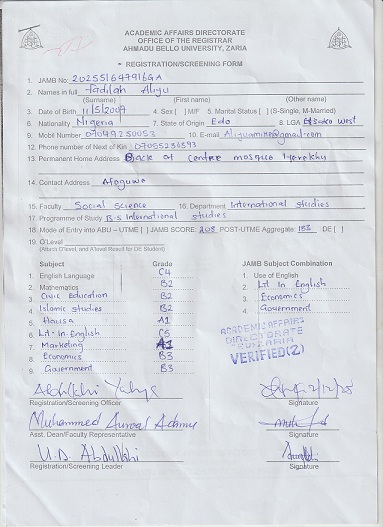 ACADEMIC AFFAIRS DIRECTORATE
OFFICE OF THE REGISTRAR
AHMADU BELLO UNIVERSITY, ZARIA
REGISTRATION/SCREENING FORM
1. JAMB No: 202551647916GA
2. Names in full Fadilah Aliyu
(Surname) (First name) (Other name)
3. Date of Birth 11/5/2007 4. Sex [ ] M/F 5. Marital Status [ ] (S-Single, M-Married)
6. Nationality Nigeria 7. State of Origin Edo 8. LGA Etsako west
9. Mobil Number 07049250053 10. E-mail Aliyuamina@gmail.com
12. Phone number of Next of Kin 07035234593
13. Permanent Home Address Back of centre mosque
14. Contact Address
15. Faculty Social science 16. Department International studies
17. Programme of Study B.S International studies
18. Mode of Entry into ABU – UTME [ ] JAMB SCORE: 208 POST-UTME Aggregate: 183 DE [ ]
19. O'Level
(Attach O'Level, and A'level Result for DE Student)
Subject Grade JAMB Subject Combination
1. English Language C4 1. Use of English
2. Mathematics B2 2. Lit In English
3. Civic Education B2 3. Economics
4. Islamic studies B2 4. Government
5. Hausa A1
6. Lit-In-English C5
7. Marketing A1
8. Economics B3
9. Government B3
ACADEMIC AFFAIRS
DIRECTORATE
VERIFIED(2)
Registration/Screening Officer Signature
Muhammed Auwal Adamu
Asst. Dean/Faculty Representative Signature
U.D. Abdullahi
Registration/Screening Leader Signature